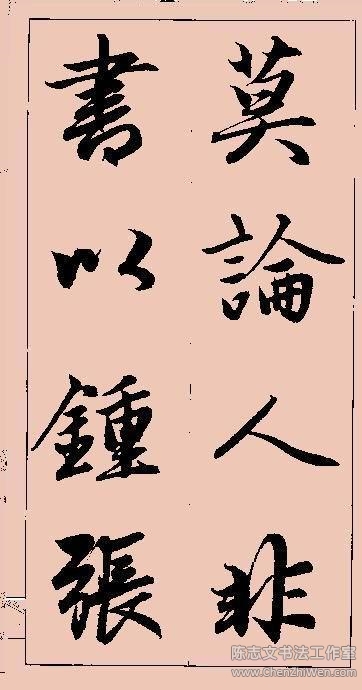 莫論人非
書以鍾張
陈志文书法工作室
www.Chenzhiwen.com